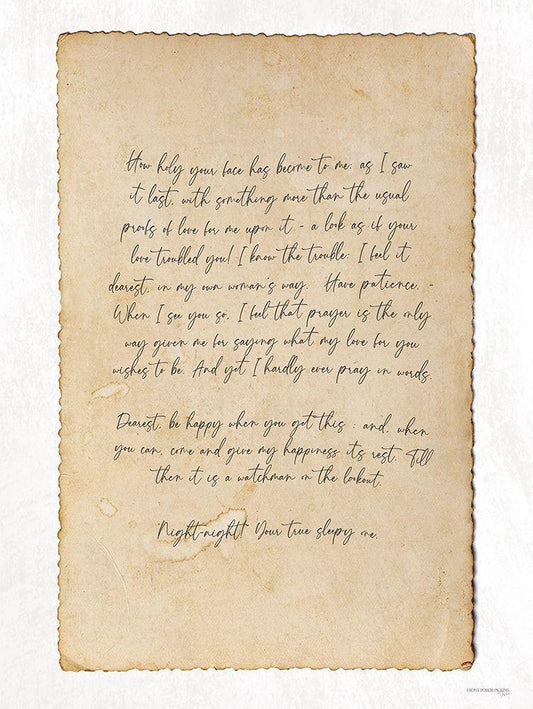 How holy your face has become to me: as I saw
it last, with something more than the usual
proofs of love for me upon it - a look as if your
love troubled you! I know the trouble: I feel it
dearest, in my own woman's way. Have patience. -
When I see you so, I feel that prayer is the only
way given me for saying what my love for you
wishes to be. And yet I hardly ever pray in words.
Dearest, be happy when you get this : and, when
you can, come and give my happiness its rest. Till
then it is a watchman on the lookout.
Night-night! Your true sleepy one.